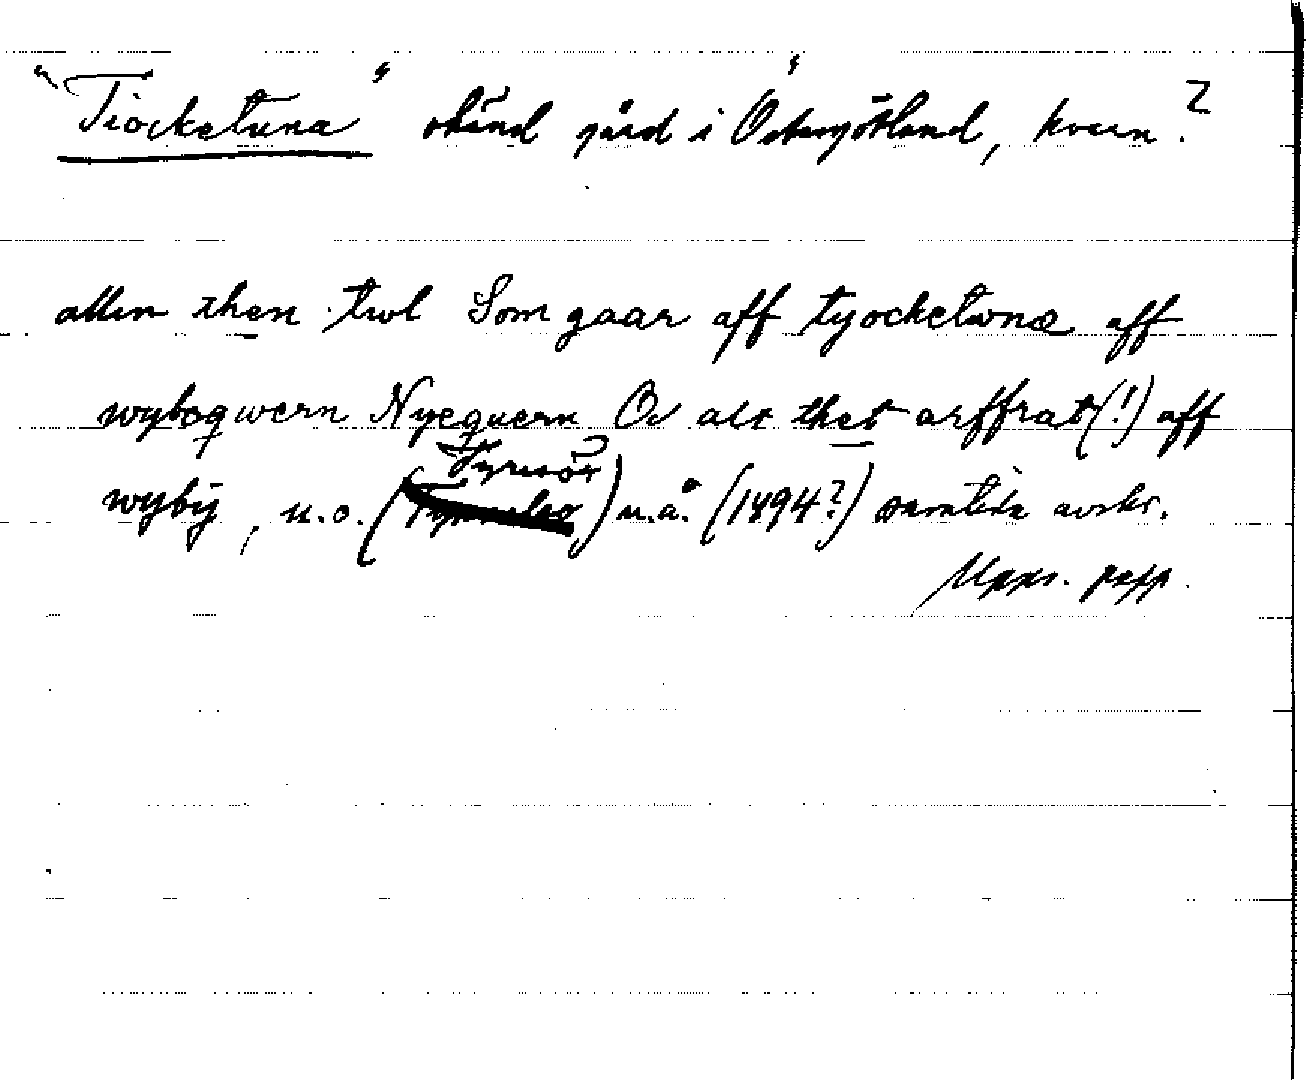 "Tiocketuna" okänd gård i Östergötland, kvarn?
allen then twl Som gaar aff tyocketwna aff
wybeqwern Nyequern Oc alt thet arffrat(!) aff
Tyresör
wyby, u.o. ( ) u.å. (1494?) samtida avskr.
Upps. papp.